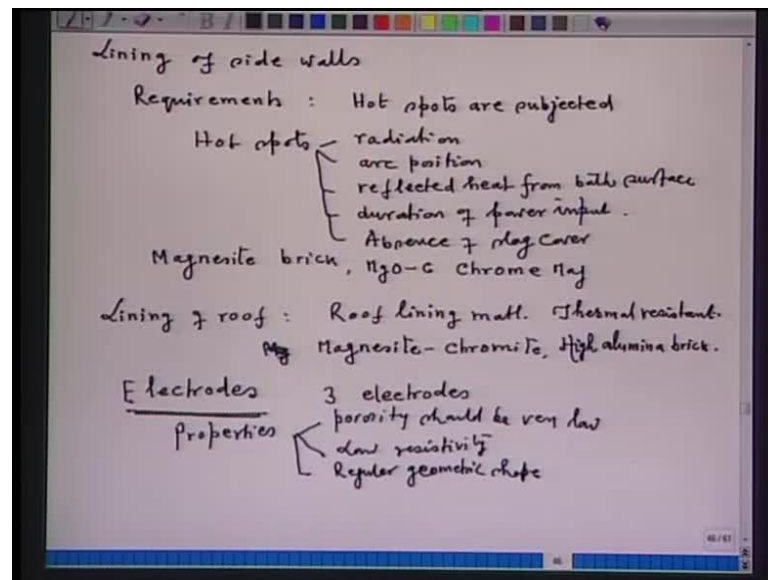 B I
Lining of side walls
Requirements : Hot spots are subjected
Hot spots radiation
arc position
reflected heat from bath surface
duration of power input.
Absence of slag cover
Magnesite brick, MgO-C Chrome Mag
Lining of roof : Roof lining matl. Thermal resistant.
Mg Magnesite-Chromite, High alumina brick.
Electrodes 3 electrodes
Properties porosity should be very low
Low resistivity
Regular geometric shape
46/61
46